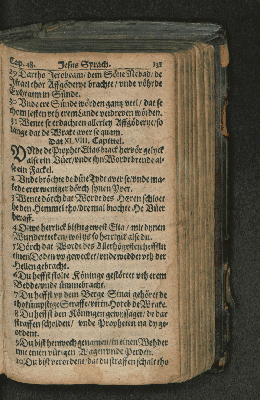 Cap. 48. Jesus Syrach. 132
29 Dartho Jerobeam / dem Söne Nebad / de
Israel thor Affgöderye brachte / unde vöhrde
Ephraim in Sünde.
30 Unde erer Sünde wörden gantz veel / dat se
thom lesten uth erem Lande vordreven wörden.
31 Wente se erdachten allerley Affgöderye / so
lange dat de Wrake aver se quam.
Dat XLVIII. Capittel.
UNde de Prophet Elias brack hervör gelyck
alse ein Vüer / unde syn Wordt brende al-
se ein Fackel.
2 Unde bröchte de düre Tydt aver se / unde ma-
kede erer weniger dörch synen Yver.
3 Wente dörch dat Wordt des Heren schloet
he den Hemmel tho / dremal brochte He Vüer
heraff.
4 O wo herrlick bistu gewest Elia / mit dynen
Wunderteken / wol ys so herrlyck alse du.
5 Dörch dat Wordt des Allerhögesten heffstu
einen Doden up gewecket / unde wedder uth der
Hellen gebracht.
6 Du heffst stolte Köninge gestörtet uth erem
Bedde / unde ümmebracht.
7 Du heffst up dem Berge Sinai gehöret de
thokümpstige Straffe / ver in Horeb de Wrake.
8 Du heffst den Köningen gewyssaget / de dar
straffen scholden / unde Propheten na dy ge-
ordent.
9 Du bist henwech genamen / in einem Wedder
mit einem vürigen Wagen unde Perden.
10 Du bist verordent / dat du straffen schalt tho